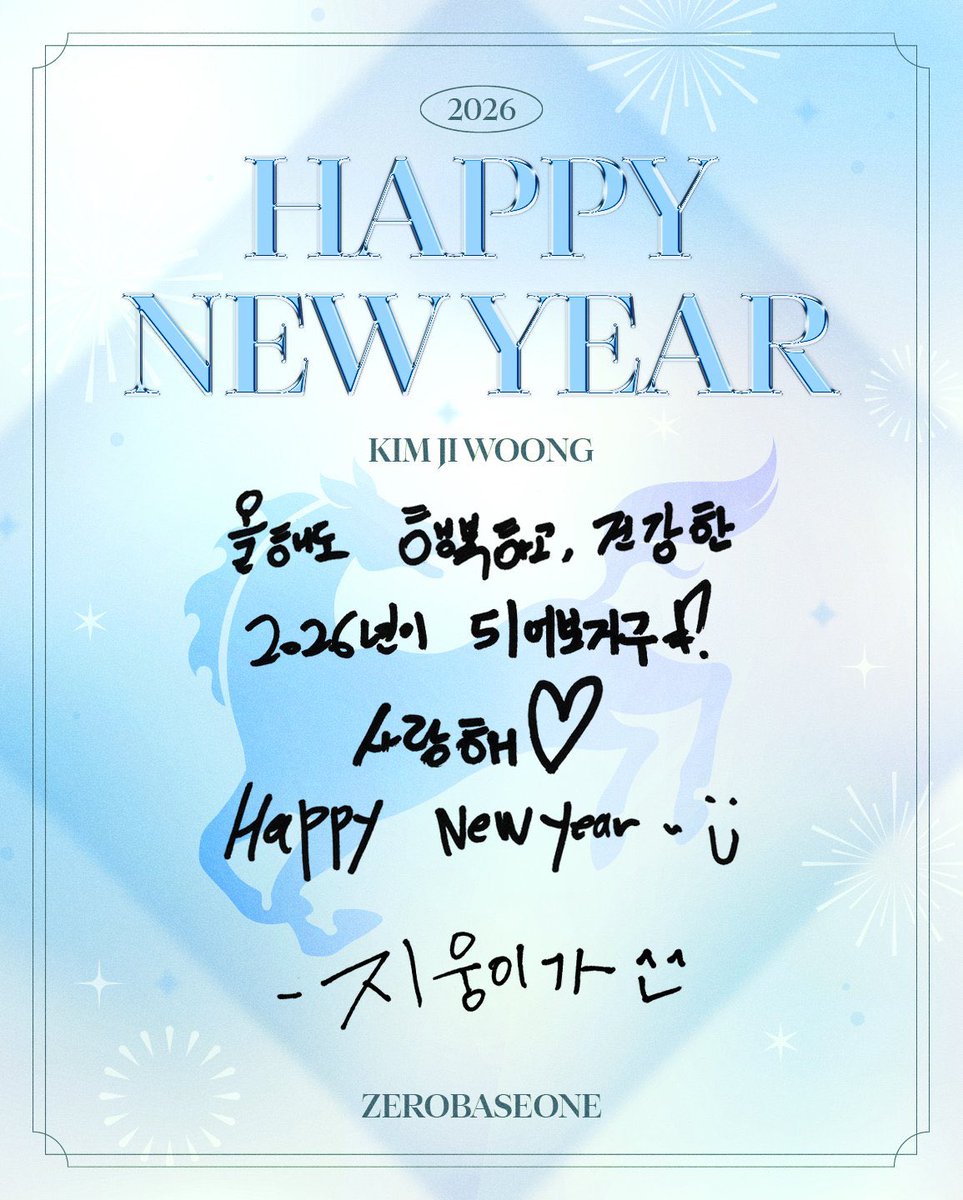 2026
HAPPY
NEW YEAR
KIM JI WOONG
올해도 행복하고, 건강한
2026년이 되어보자구!
사랑해♡
Happy New Year~ ü
- 지웅이가 ^^
ZEROBASEONE